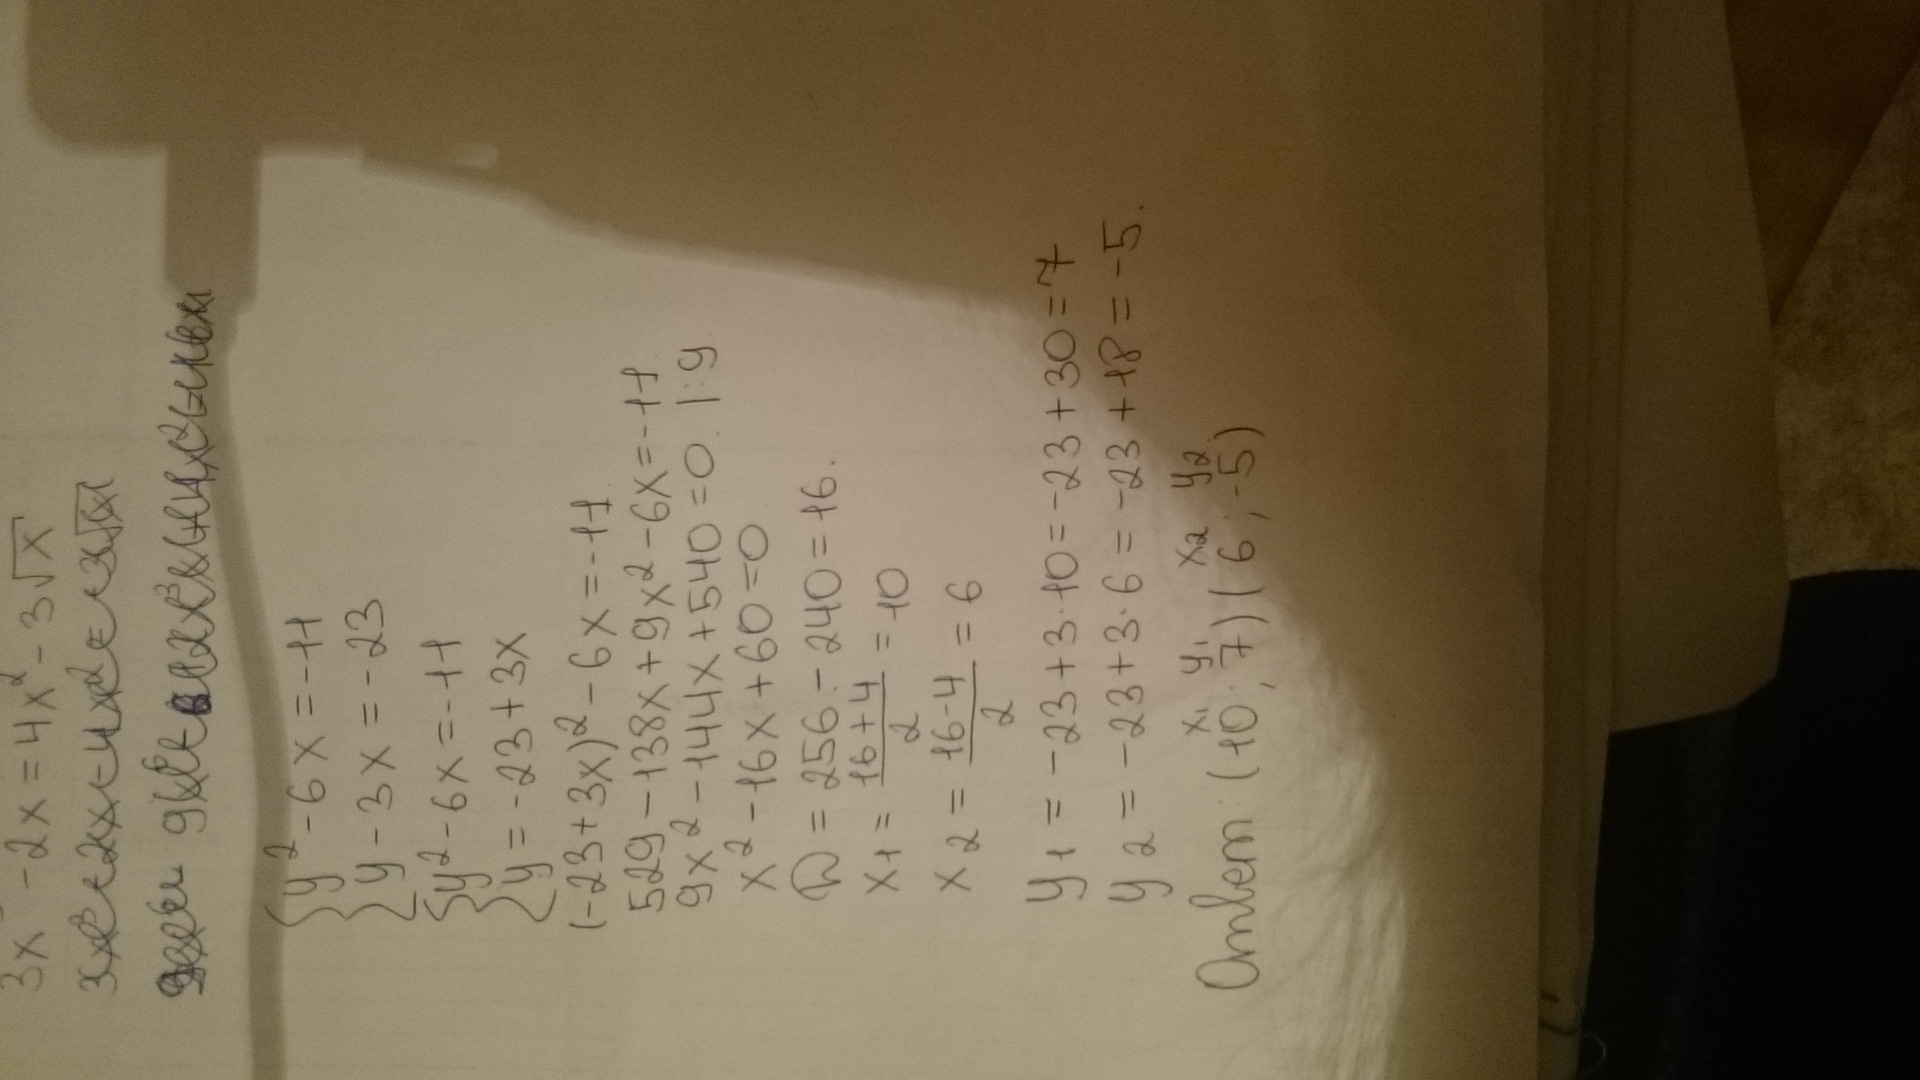 3x - 2x = 4x² - 3√x
{ y² - 6x = -11
{ y - 3x = -23
{ y² - 6x = -11
{ y = -23 + 3x
(-23+3x)² - 6x = -11.
529 - 138x + 9x² - 6x = -11.
9x² - 144x + 540 = 0. |:9
x² - 16x + 60 = 0
D = 256 - 240 = 16.
x1 = (16+4)/2 = 10
x2 = (16-4)/2 = 6
y1 = -23 + 3·10 = -23 + 30 = 7
y2 = -23 + 3·6 = -23 + 18 = -5.
x1 y1 x2 y2
Ответ: (10; 7) (6; -5)